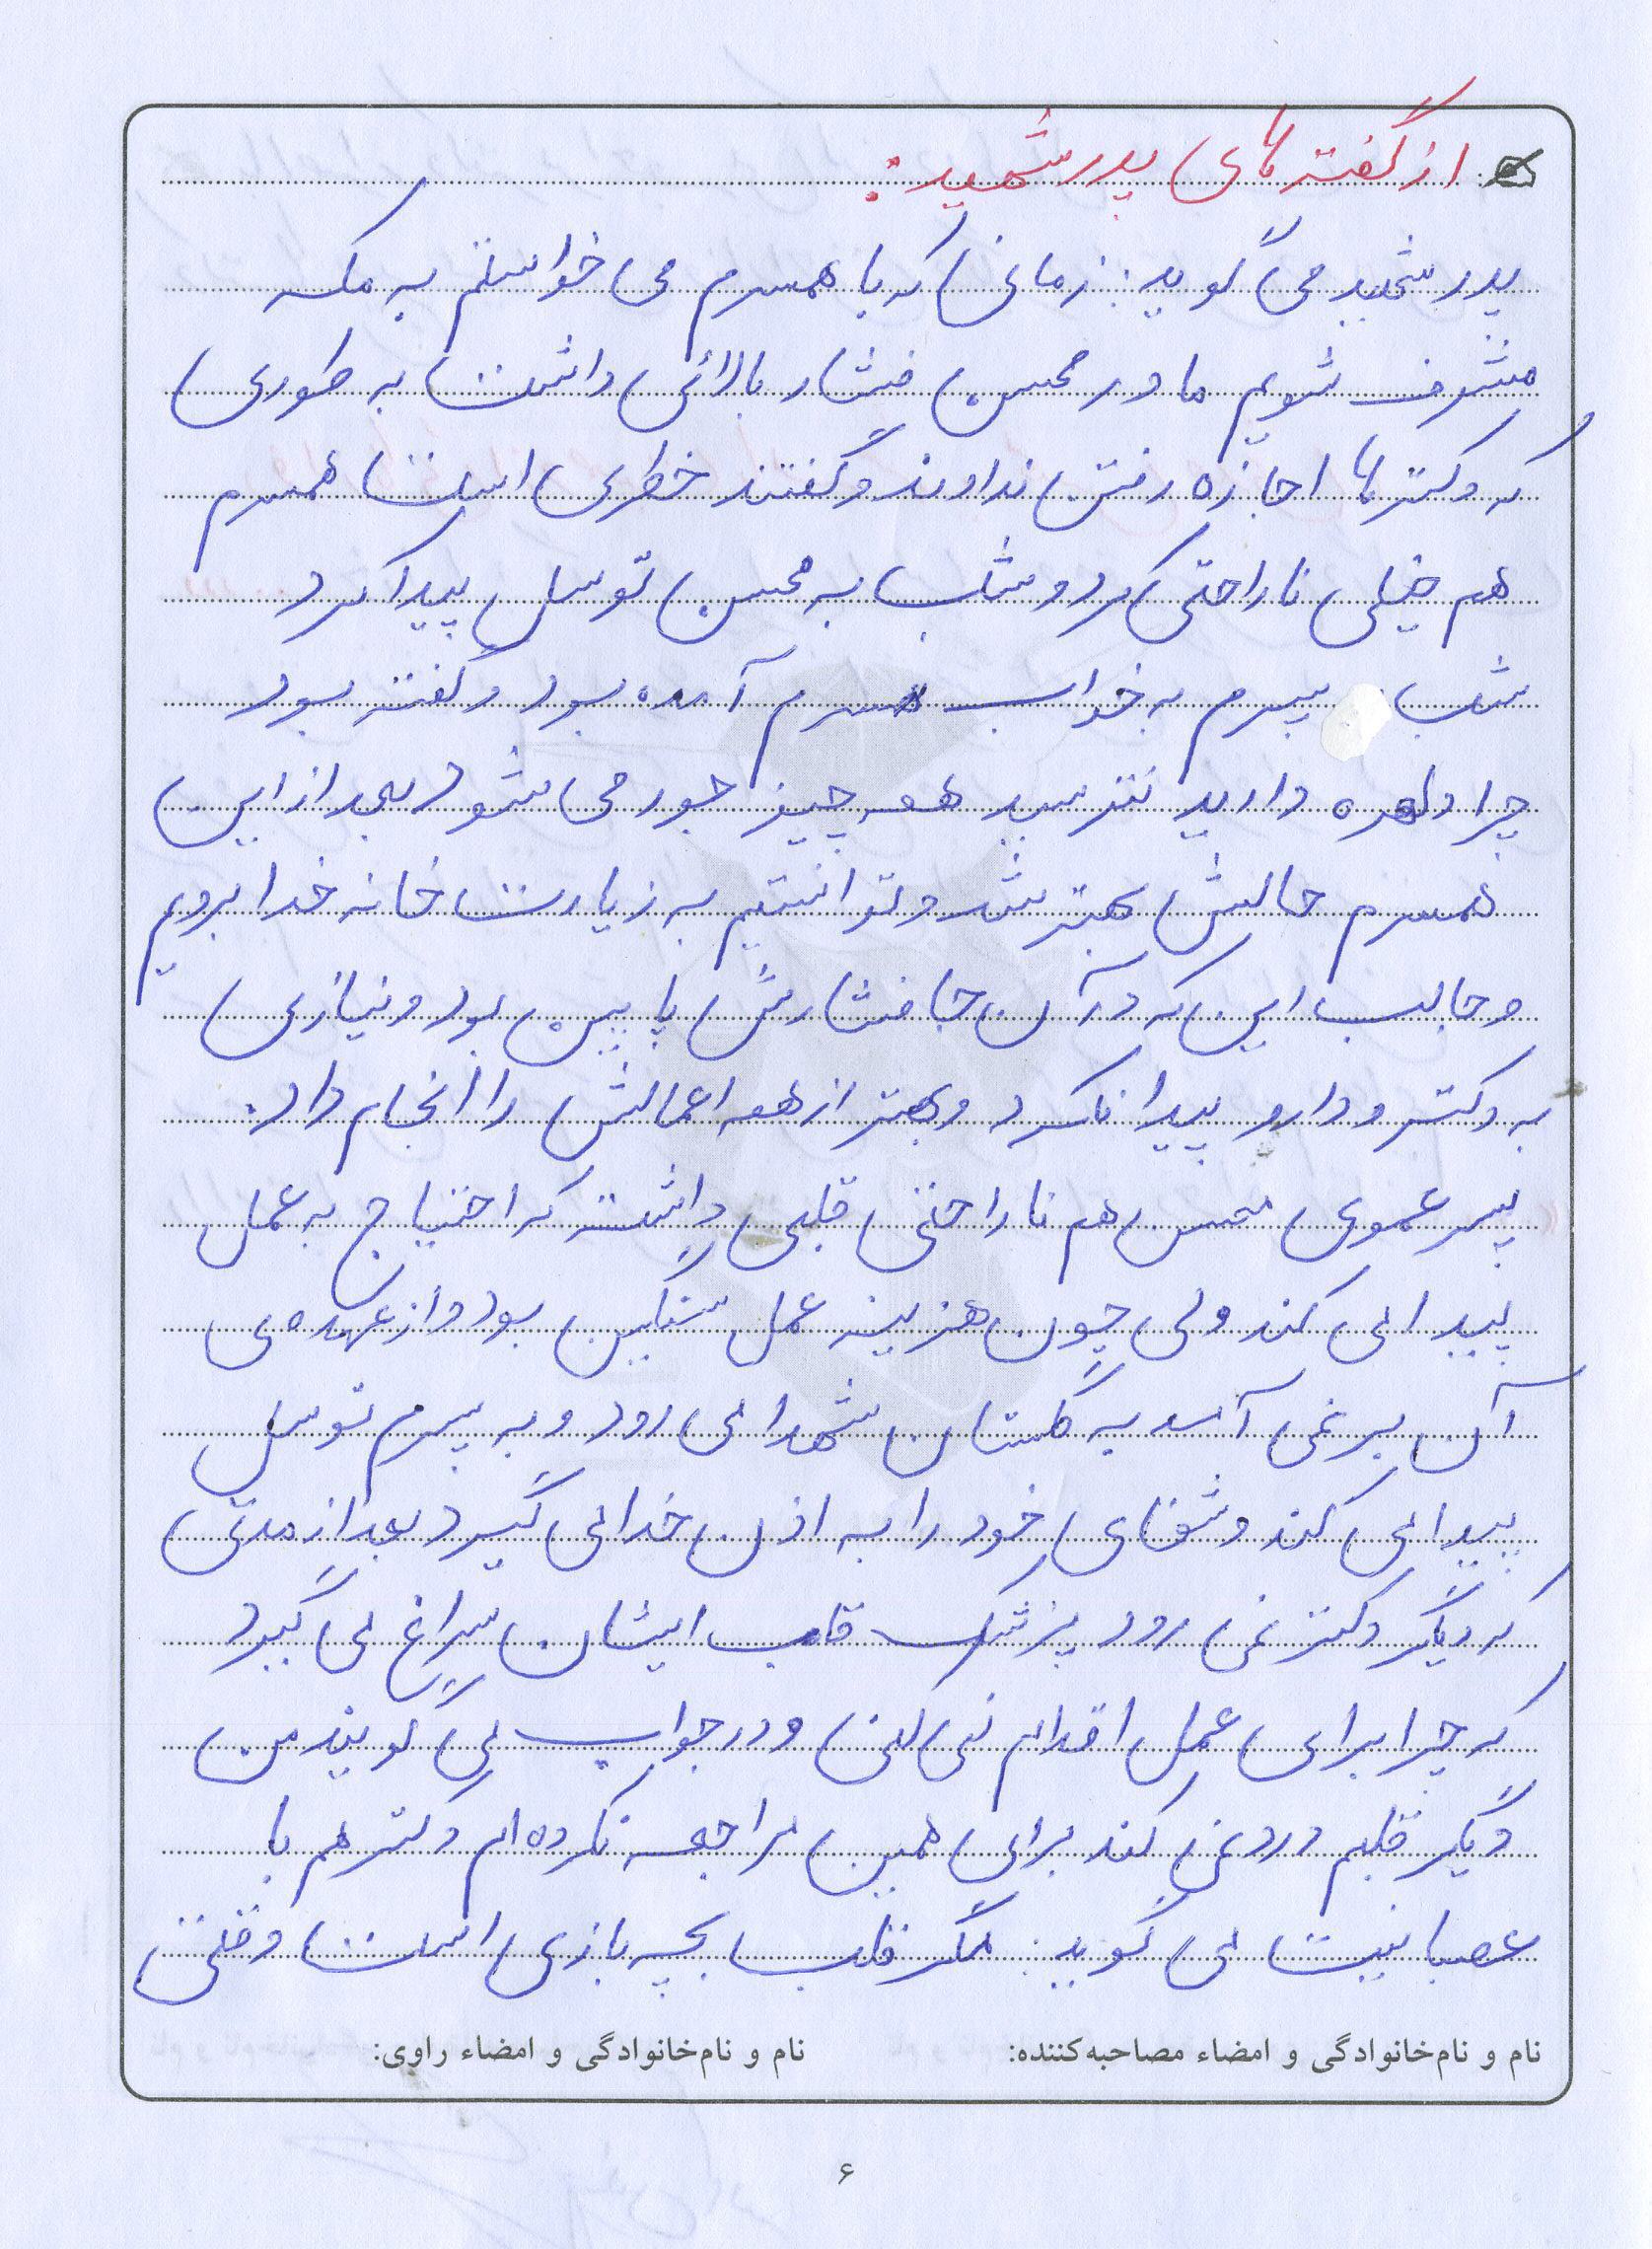 از گفته های پدر شهید:
پدر شهید می گوید: زمانی که با همسرم می خواستم به مکه
مشرف شویم مادر محسن فشار بالائی داشت به طوری
که دکترها اجازه رفتن ندادند و گفتند خطری است همسرم
هم خیلی ناراحتی کرد و شب به محسن توسل پیدا کرد
شب پسرم به خواب همسرم آمده بود و گفته بود
چرا دلهره دارید نترسید همه چیز جور می شود بعد از این
همسرم حالش بهتر شد و توانستیم به زیارت خانه خدا برویم
و جالب این که در آن جا فشارش پایین بود و نیازی
به دکتر و دارو پیدا نکرد و بهتر از همه اعمالش را انجام داد.
پسر عموی محسن هم ناراحتی قلبی داشت که احتیاج به عمل
پیدا می کند ولی چون هزینه عمل سنگین بود و از عهده ی
آن بر نمی آمد به گلستان شهدا می رود و به پسرم توسل
پیدا می کند و شفای خود را به اذن خدا می گیرد بعد از مدتی
که دیگر دکتر نمی رود پزشک قلب ایشان سراغ می گیرد
که چرا برای عمل اقدام نمی کنی و در جواب می گویند من
دیگر قلبم درد نمی کند برای همین مراجعه نکرده ام دکتر هم با
عصبانیت می گوید: مگر قلب بچه بازی است وقتی
نام و نام‌خانوادگی و امضاء مصاحبه‌کننده: نام و نام‌خانوادگی و امضاء راوی:
۶